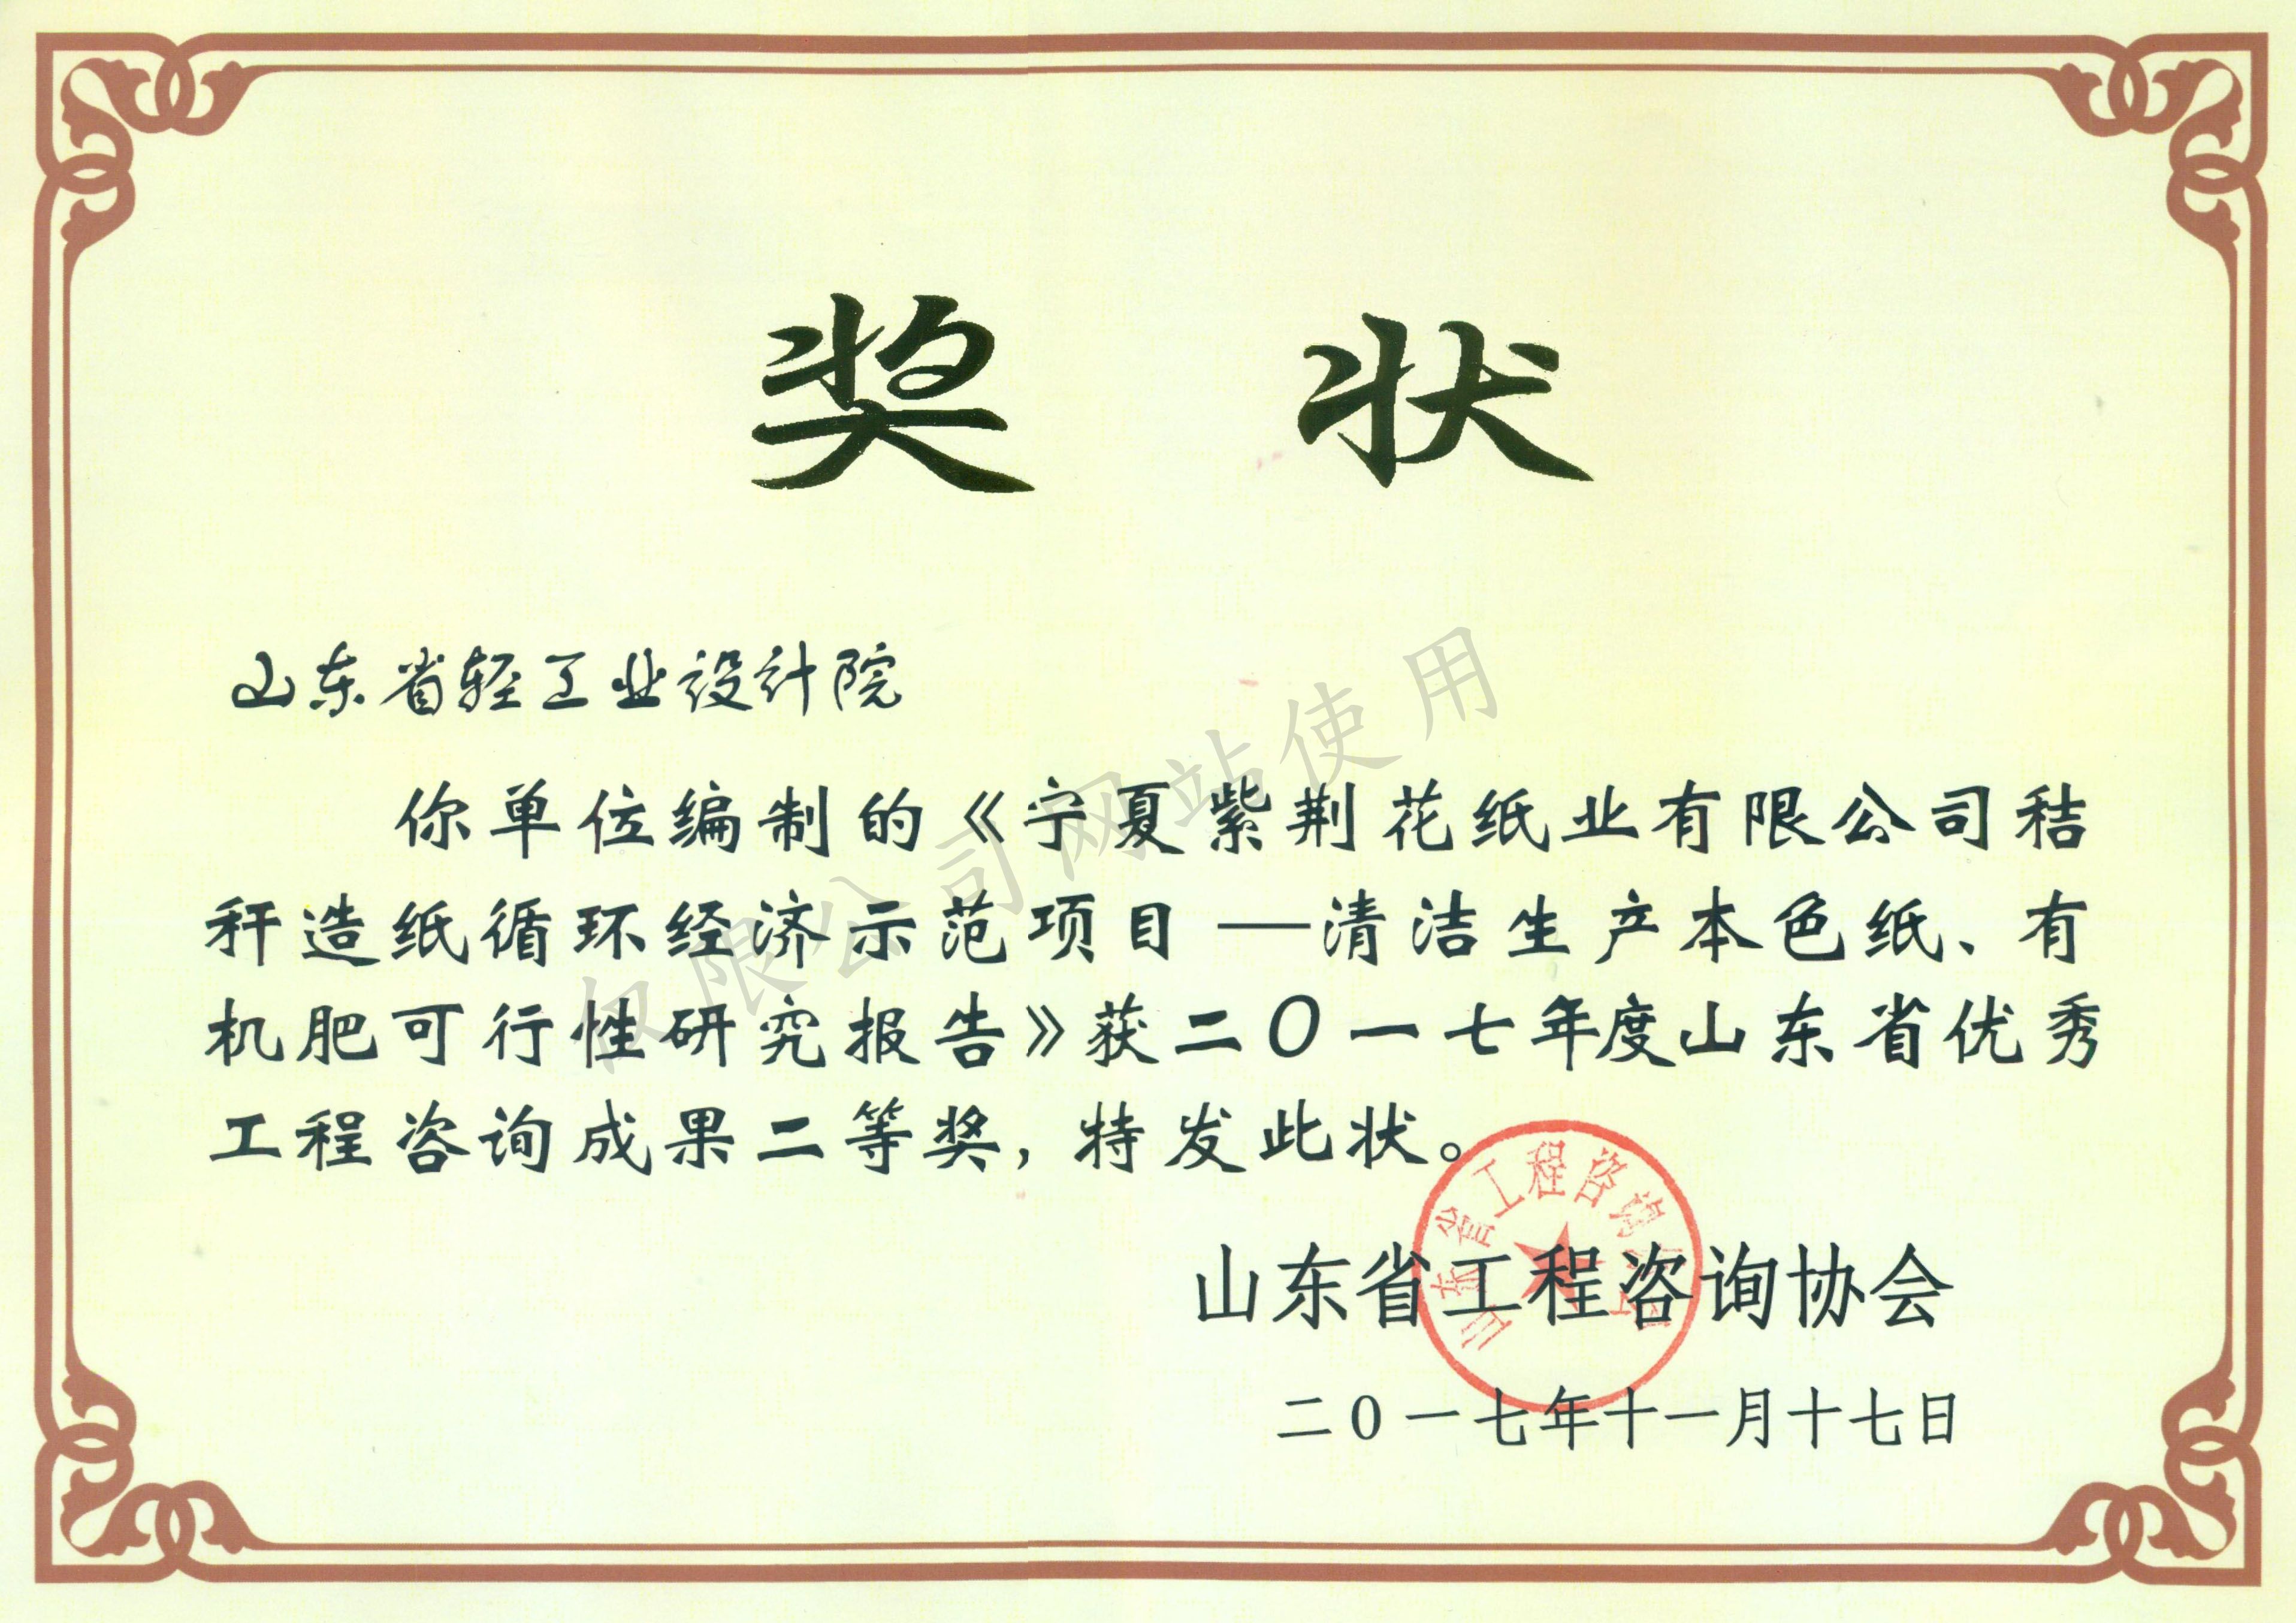 奖 状
山东省轻工业设计院
你单位编制的《宁夏紫荆花纸业有限公司秸
秆造纸循环经济示范项目—清洁生产本色纸、有
机肥可行性研究报告》获二〇一七年度山东省优秀
工程咨询成果二等奖，特发此状。
山东省工程咨询协会
二〇一七年十一月十七日
仅限公司网站使用
山东省工程咨询协会